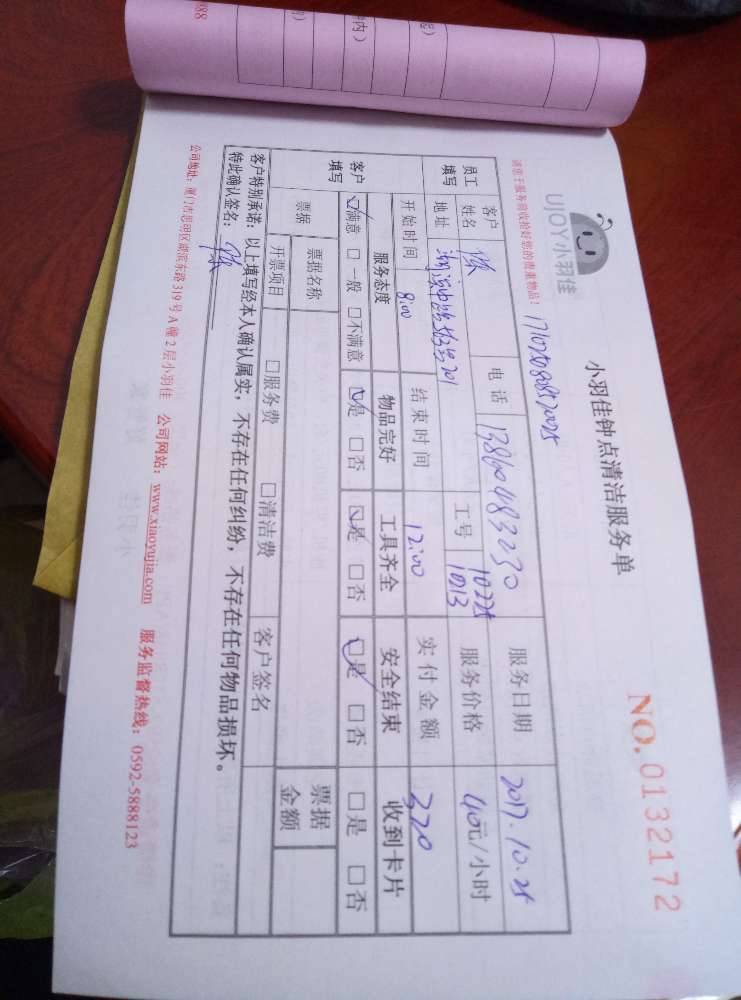 088
UJOY小羽佳
小羽佳钟点清洁服务单
NO.0132172
请您于服务前收捡好您的贵重物品!
员工填写
客户姓名
陈
电话
13860483230
服务日期
2017.10.25
地址
工号
10225
10213
服务价格
40元/小时
开始时间
8:00
结束时间
12:00
实付金额
320
客户填写
服务态度
物品完好
工具齐全
安全结束
收到卡片
☑满意 □一般 □不满意
☑是 □否
☑是 □否
☑是 □否
□是 □否
票据
票据名称
票据金额
开票项目
□服务费
□清洁费
客户签名
客户特别承诺:以上填写经本人确认属实,不存在任何纠纷,不存在任何物品损坏。
特此确认签名:陈
公司地址:厦门市思明区湖滨东路319号A幢2层小羽佳 公司网站:www.xiaoyujia.com 服务监督热线:0592-5888123